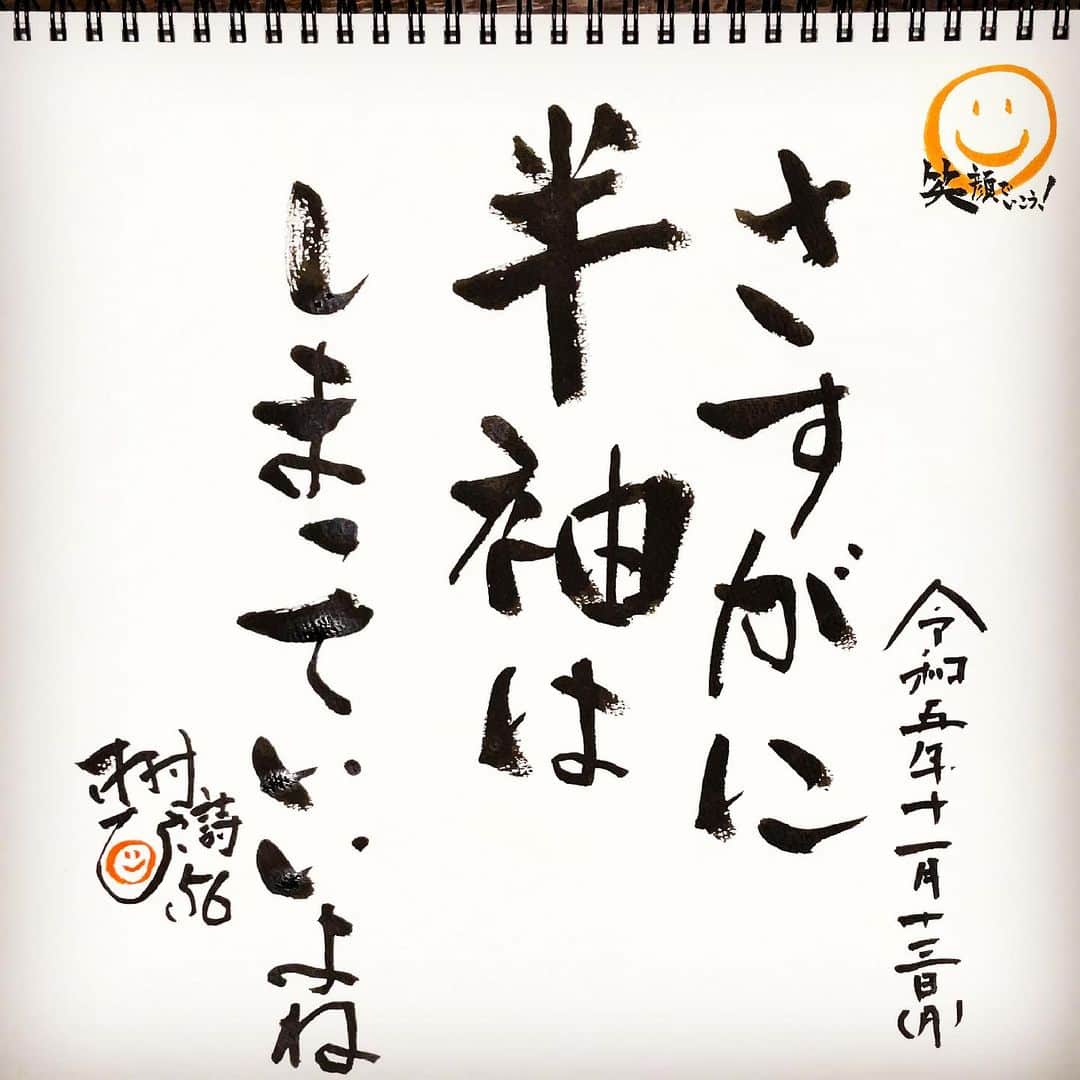 笑顔でいこう！
令和五年十一月十三日(月)
さすがに
半袖は
しまっていいよね
詩
56